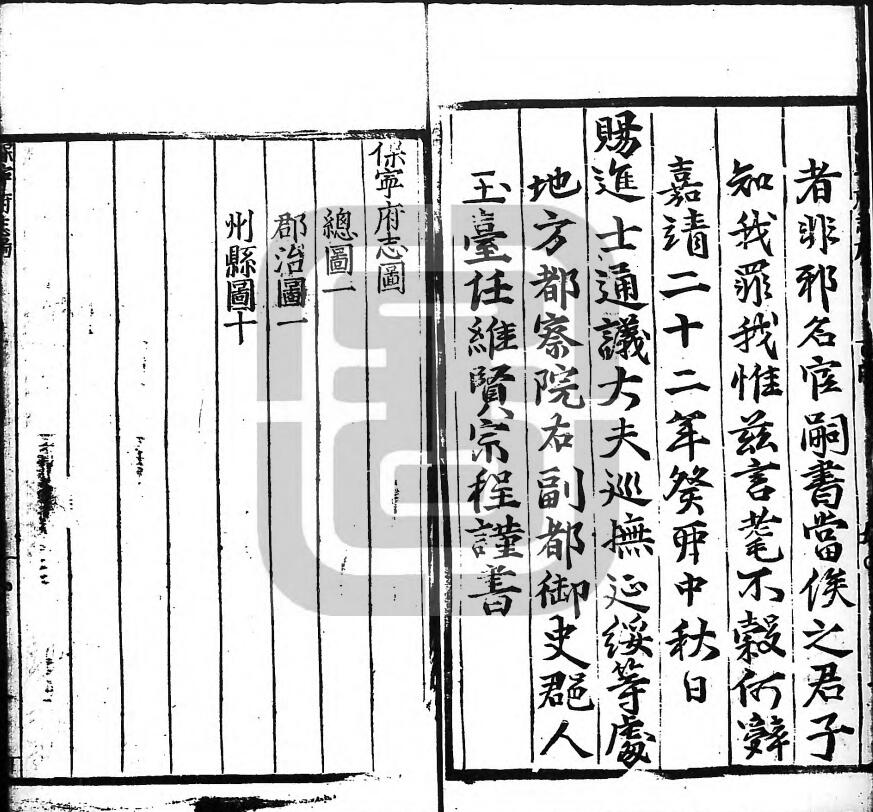 者非邪名宦嗣書當俟之君子
知我罪我惟茲言耄不穀何辯
嘉靖二十二年癸卯中秋日
賜進士通議大夫巡撫延綏等處
地方都察院右副都御史郡人
玉臺任維賢宗程謹書
保寧府志圖
總圖一
郡治圖一
州縣圖十